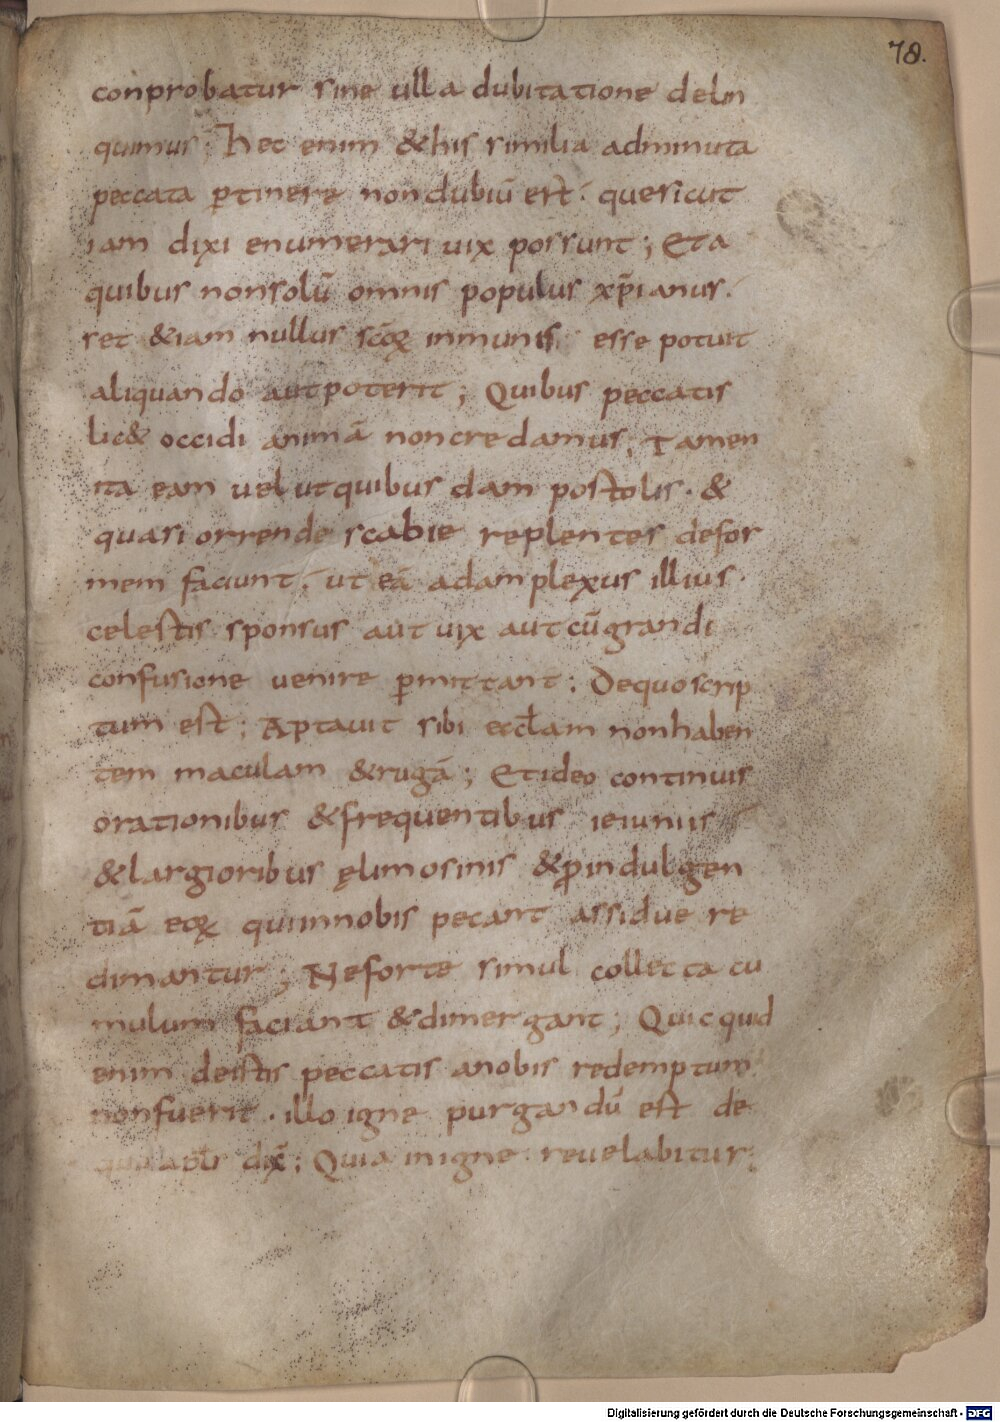 78.
conprobatur sine ulla dubitatione delin
quimus; Hec enim &his similia adminuta
peccata ꝑtinere nondubiū est· quesicut
iam dixi enumerari uix possunt; Eta
quibus nonsolū omnis populus xp̄ianus·
set &iam nullus sc̄oꝝ inmunis esse potuit
aliquando autpoterit; Quibus peccatis
lic& occidi animā noncredamus; Tamen
ita eam uelutquibusdam postolis· &
quasi orrende scabie replentes defor
mem faciunt; ut eā adamplexus illius·
celestis sponsus aut uix autcū grandi
confusione uenire ꝑmittant; Dequoscrip
tum est; Aptauit sibi eccl̄am nonhaben
tem maculam &rugā; Etideo continuis
orationibus &frequentibus ieiuniis
&largioribus ęlimosinis &ꝑindulgen
tiā eoꝝ quiinnobis pecant assidue re
dimantur; Neforte simul collecta cu
mulum faciant &dimergant; Quicquid
enim deistis peccatis anobis redemptum
nonfuerit· illo igne purgandū est de
dix̄; Quia inigne reuelabitur;
Digitalisierung gefördert durch die Deutsche Forschungsgemeinschaft - DFG